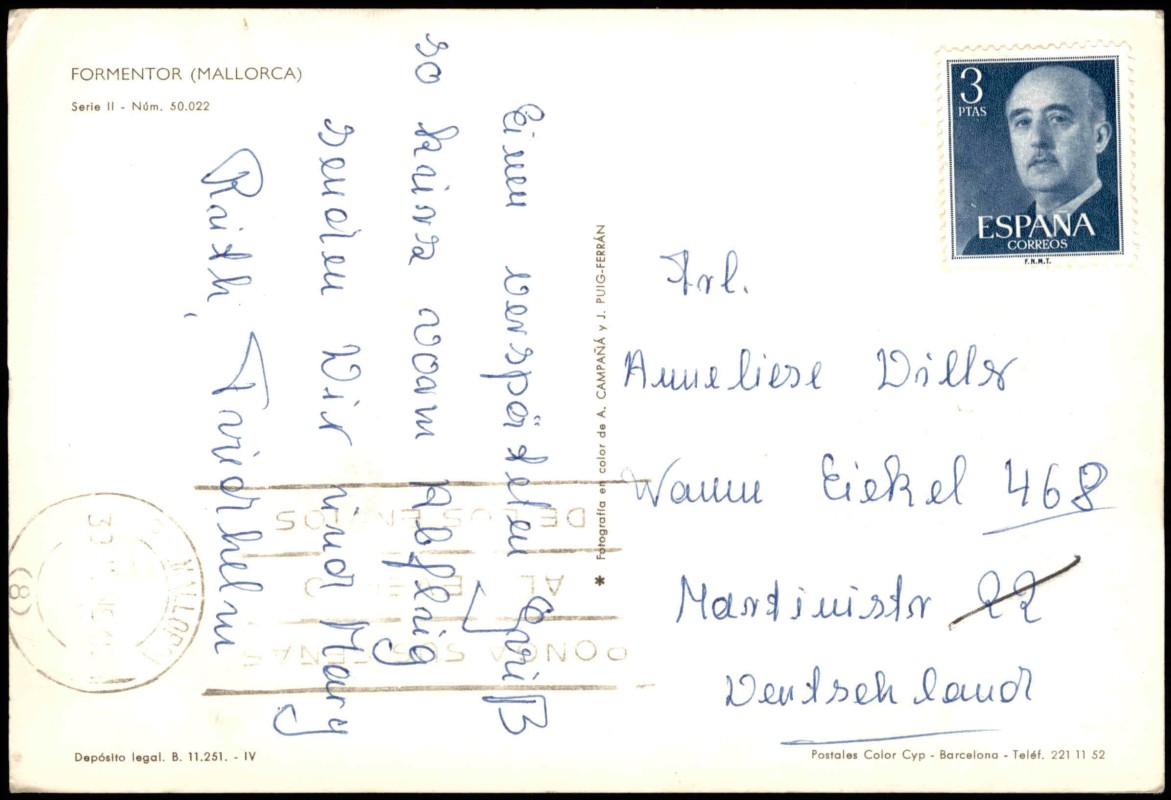 FORMENTOR (MALLORCA)
Serie II - Núm. 50.022
Einen verspäteten Gruß
so kurz vorm Abflug
senden Wir und Mary
Ruth, Friedhelm
* Fotografía en color de A. CAMPAÑÁ y J. PUIG-FERRÁN
3
PTAS
ESPAÑA
CORREOS
F.N.M.T.
Frl.
Anneliese Willer
Wanne Eickel 468
Martinistr 22
Deutschland
MALLORCA
(8)
PONGA SUS SEÑAS
AL
DE LOS ENVIOS
Depósito legal. B. 11.251. - IV
Postales Color Cyp - Barcelona - Teléf. 221 11 52